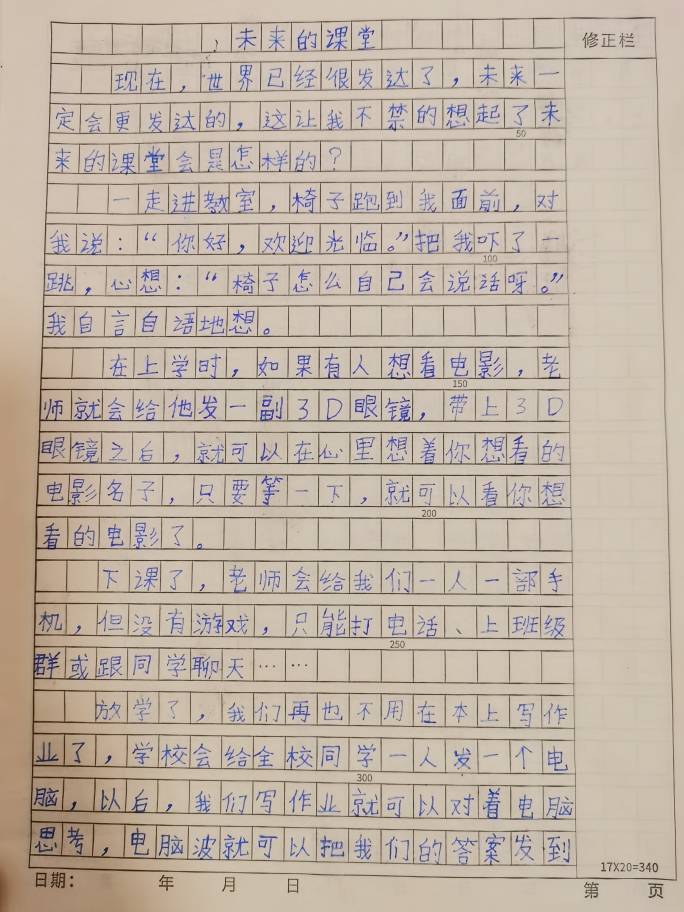 未来的课堂
修正栏
现在，世界已经很发达了，未来一
定会更发达的，这让我不禁的想起了未
50
来的课堂会是怎样的？
一走进教室，椅子跑到我面前，对
我说：“你好，欢迎光临。”把我吓了一
100
跳，心想：“椅子怎么自己会说话呀。”
我自言自语地想。
在上学时，如果有人想看电影，老
150
师就会给他发一副3D眼镜，带上3D
眼镜之后，就可以在心里想着你想看的
电影名子，只要等一下，就可以看你想
200
看的电影了。
下课了，老师会给我们一人一部手
机，但没有游戏，只能打电话、上班级
250
群或跟同学聊天……
放学了，我们再也不用在本上写作
业了，学校会给全校同学一人发一个电
300
脑，以后，我们写作业就可以对着电脑
思考，电脑波就可以把我们的答案发到
17X20=340
日期： 年 月 日
第 页